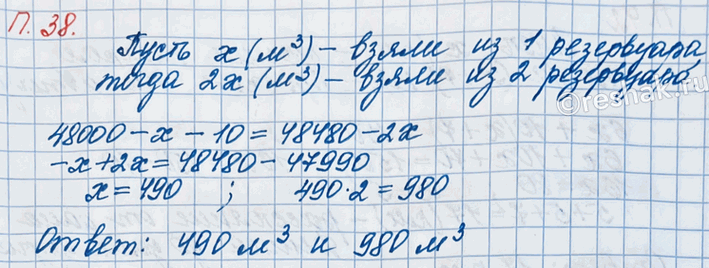 П. 38.
Пусть x (м³) – взяли из 1 резервуара
тогда 2x (м³) – взяли из 2 резервуара
©reshak.ru
48000 – x – 10 = 48480 – 2x
-x + 2x = 48480 – 47990
x = 490 ; 490·2 = 980
Ответ: 490 м³ и 980 м³